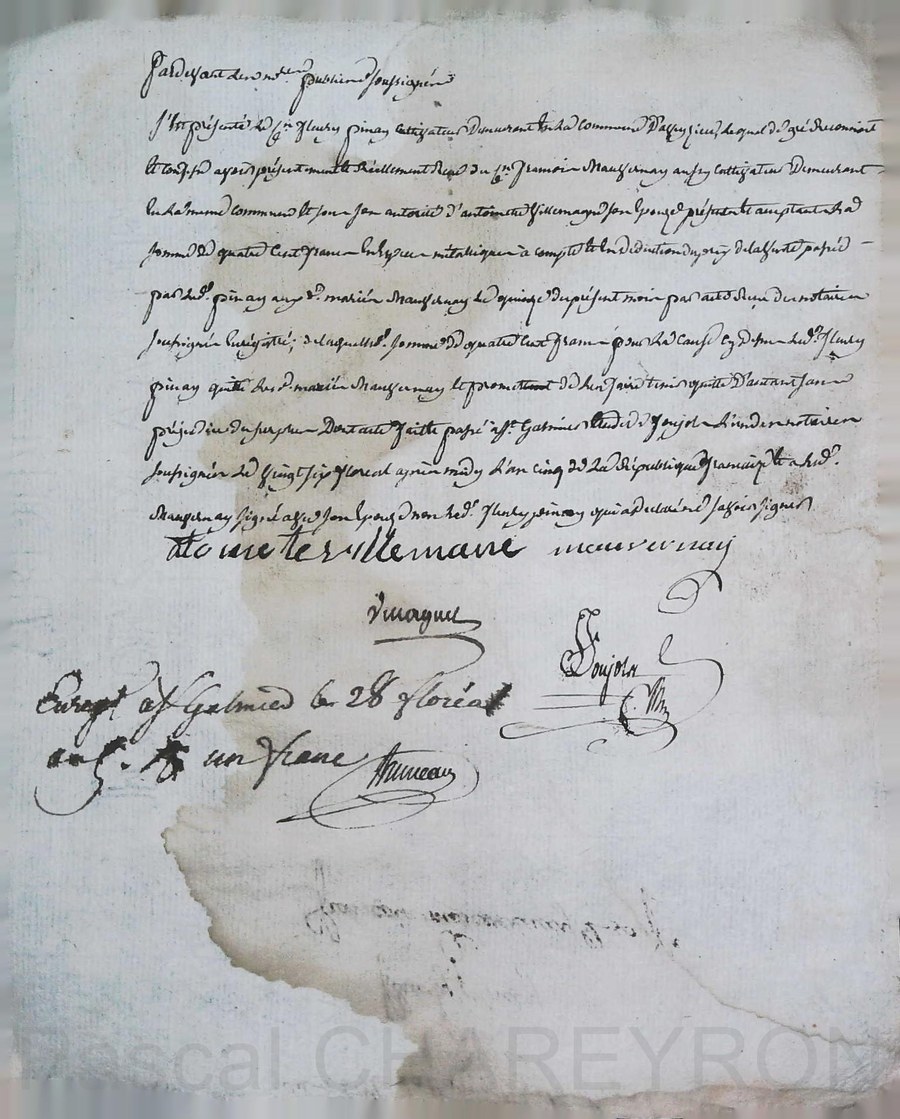 Pardevant les nores publics soussignés
s'est présenté le Cen fleury pinay cultivateur demeurant en la commune D'aveyzieu, lequel de gré reconnoit
et confesse avoir présentement et Réellement Reçu du Cen francois Mauvernay aussy cultivateur demeurant
en la meme commune et son autorité d'antoinette villemagne son Epouze présente et acceptant la
somme de quatre cent francs En Espece métallique à compte et En déduction du prix de la vente passée
par led. pinay aux d. mariés Mauvernay le quinze du présent mois par acte Reçu des notaires
soussignés Enregistré; de laquelle d. somme de quatre cent francs pour la cause cy dessus led. fleury
pinay quitte les d. mariés Mauvernay et promettant de les faire tenir quitte D'autant sans
préjudice du surplus Dont acte fait et passé à St. Galmier Etude de Joujoln l'un des notaires
soussignés le vingt six floreal après midy l'an cinq de la République francaise et a led.
Mauvernay signé avec son Epouze non led. fleury pinay qui a declaré ne savoir signer
mauvernay
Joujoln
Enregt à St Galmier le 28 floréal
an 5. un franc
Pascal CHAREYRON